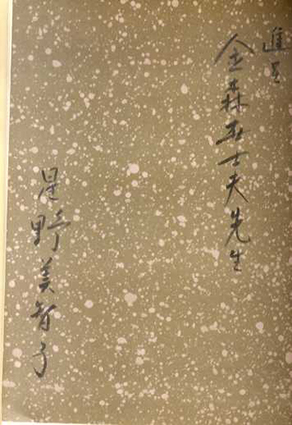 進呈
金森亜士夫先生
星野美智子